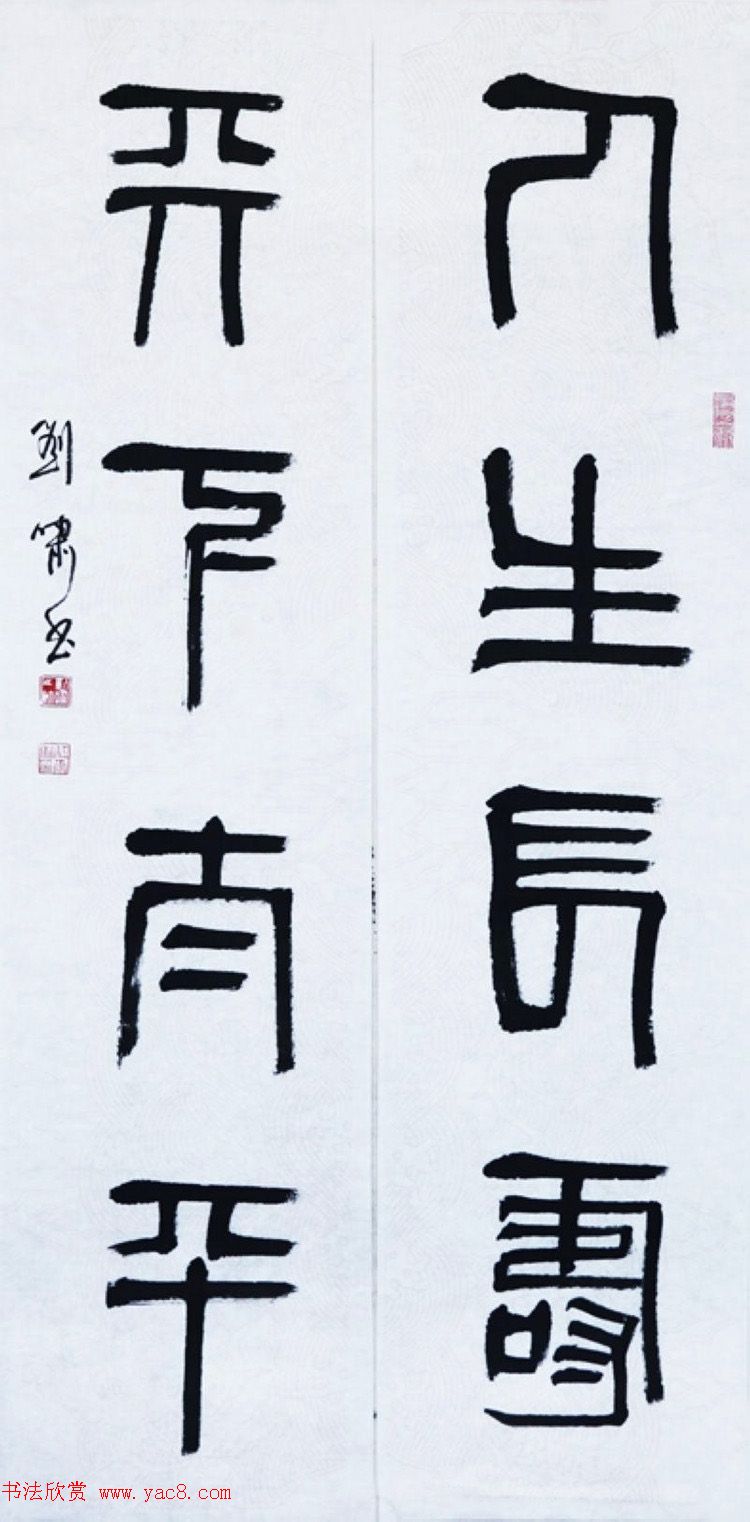 人生長壽
天下太平
劉嘯书
书法欣赏 www.yac8.com